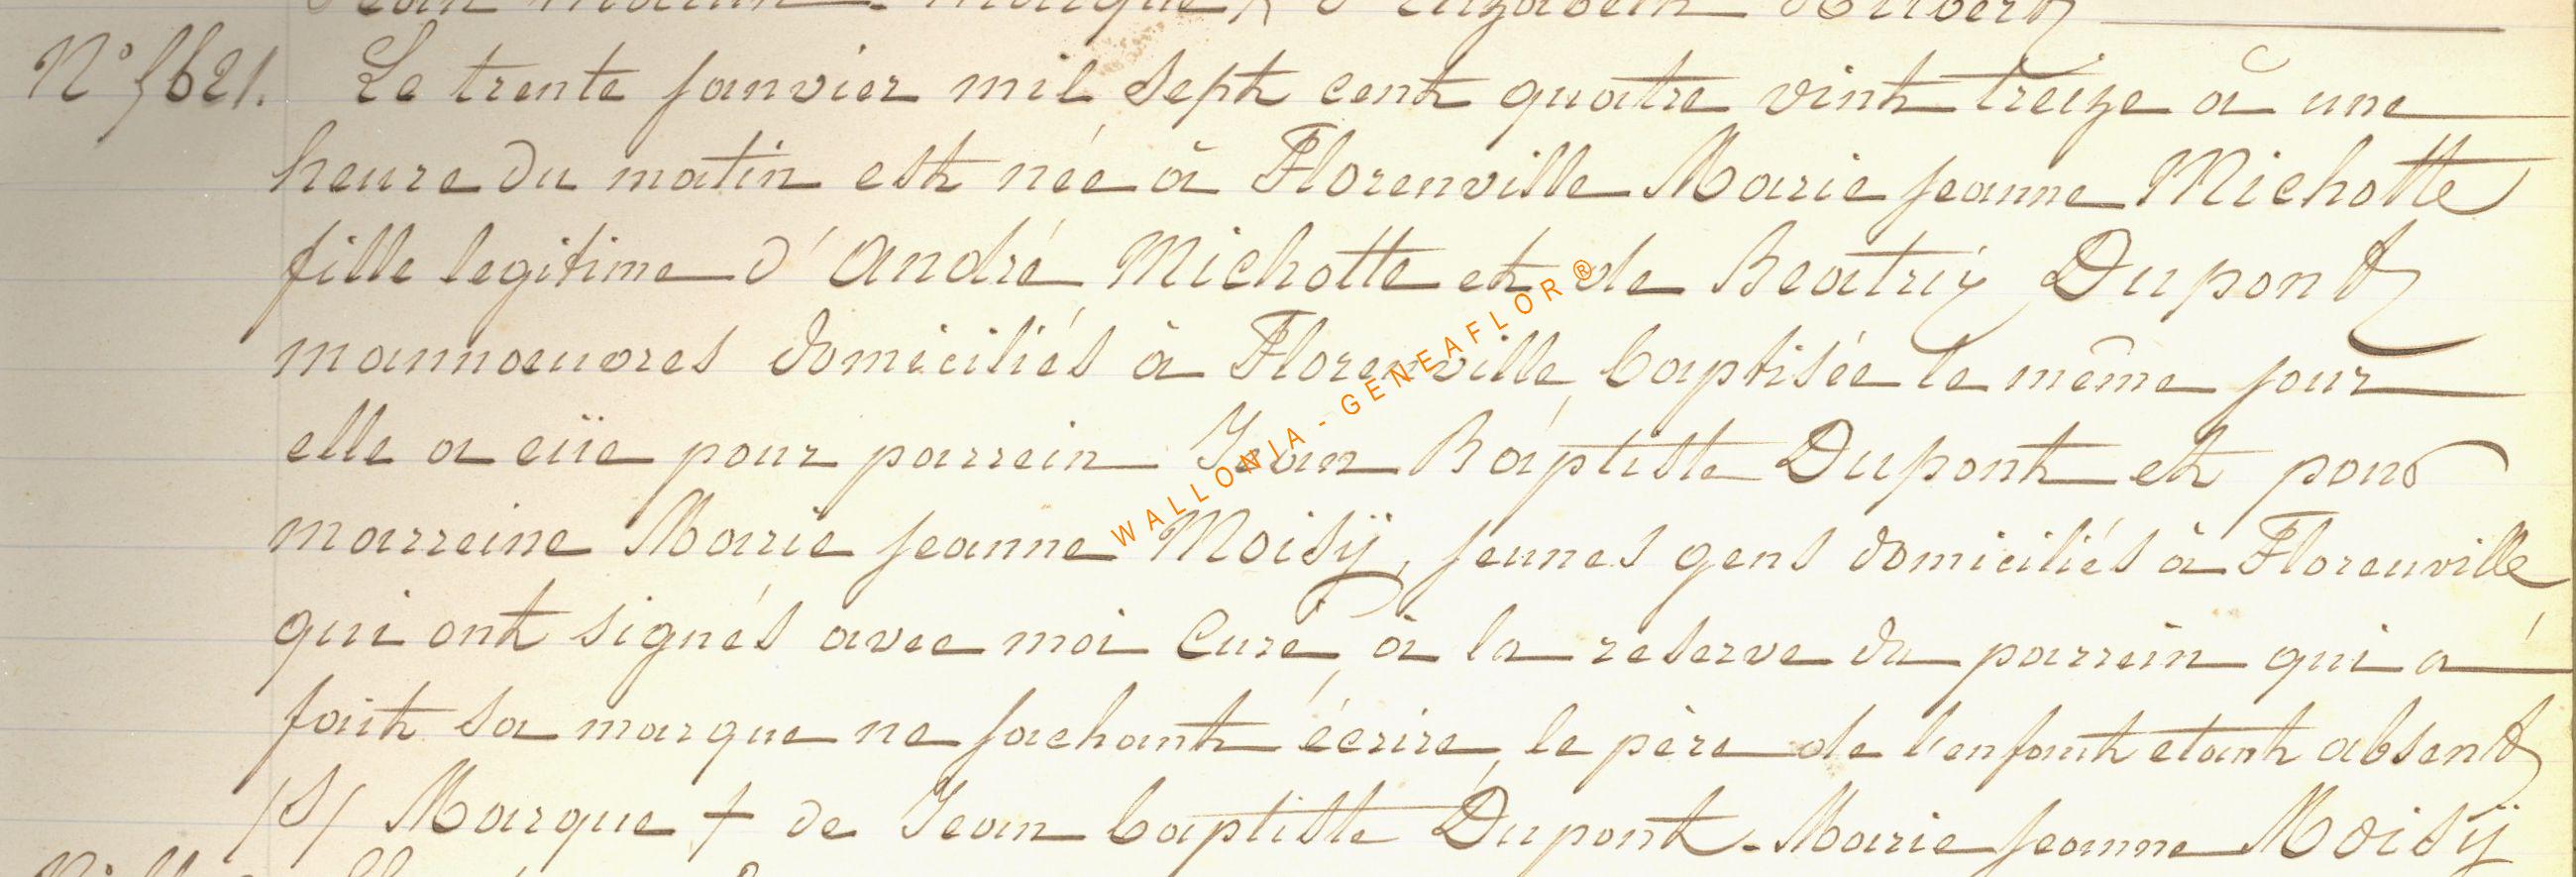 Jean marquer Elizabeth Hubert
N° 1621. Le trente janvier mil sept cent quatre vint treize à une
heure du matin est née à Florenville Marie jeanne Michotte
fille legitime d'André Michotte et de Beatrix Dupont
mannouvres domiciliés à Florenville, baptisée le même jour
elle a eüe pour parrein Jean Baptiste Dupont et pour
marreine Marie jeanne Moisÿ, jeunes gens domiciliés à Florenville
qui ont signés avec moi Curé, à la reserve du parrein qui a
fait sa marque ne sachant écrire, le père de l'enfant etant absent
/S/ Marque + de Jean baptiste Dupont. Marie jeanne Moisÿ
WALLONIA - GENEAFLOR ®